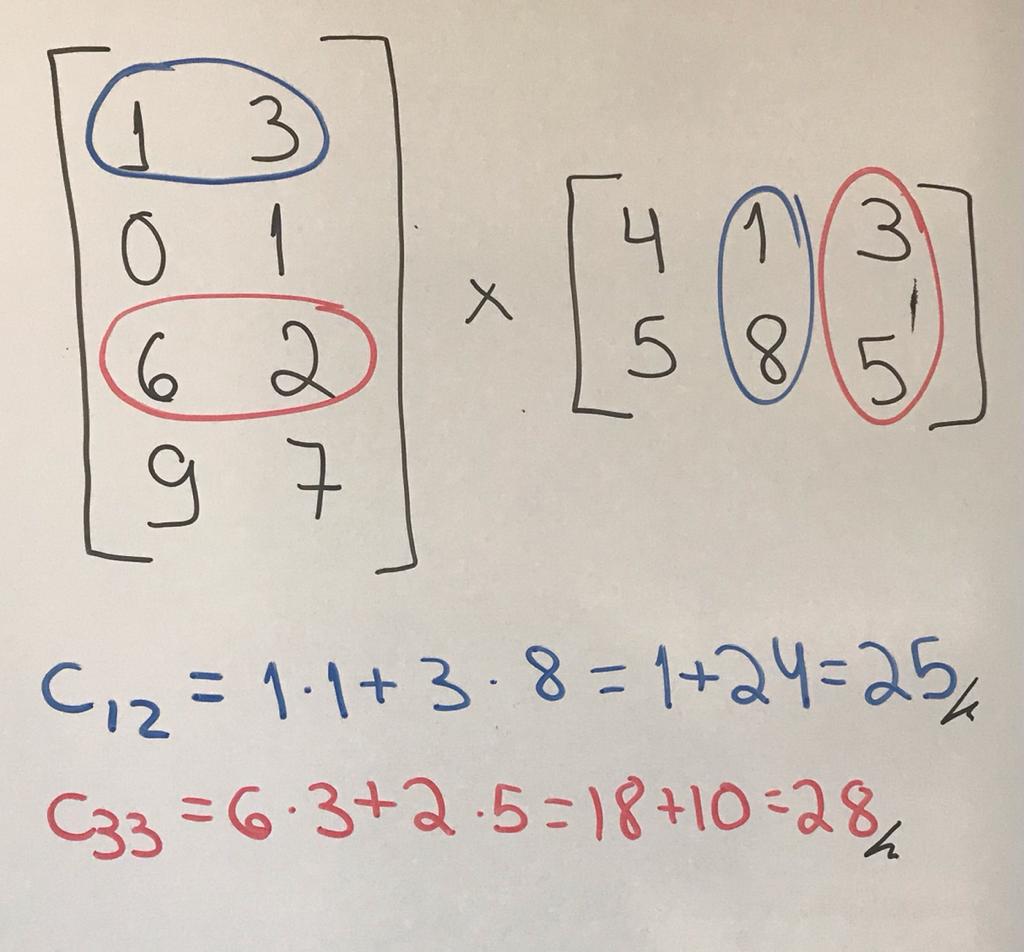 1 3
0 1
6 2
9 7
×
4 1 3
5 8 5
C12 = 1·1+3·8=1+24=25
C33 =6·3+2·5=18+10=28